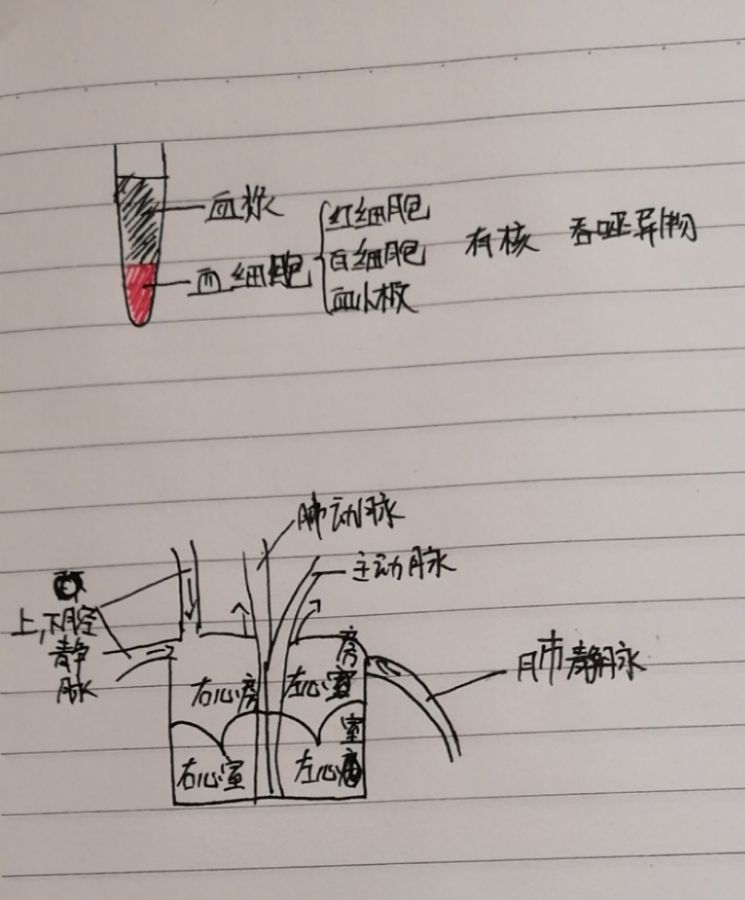 血浆
红细胞
血细胞
白细胞 有核 吞哑异物
血小板
肺动脉
主动脉
上,下腔
静
脉
房
肺静脉
右心房
左心
室
右心室
左心